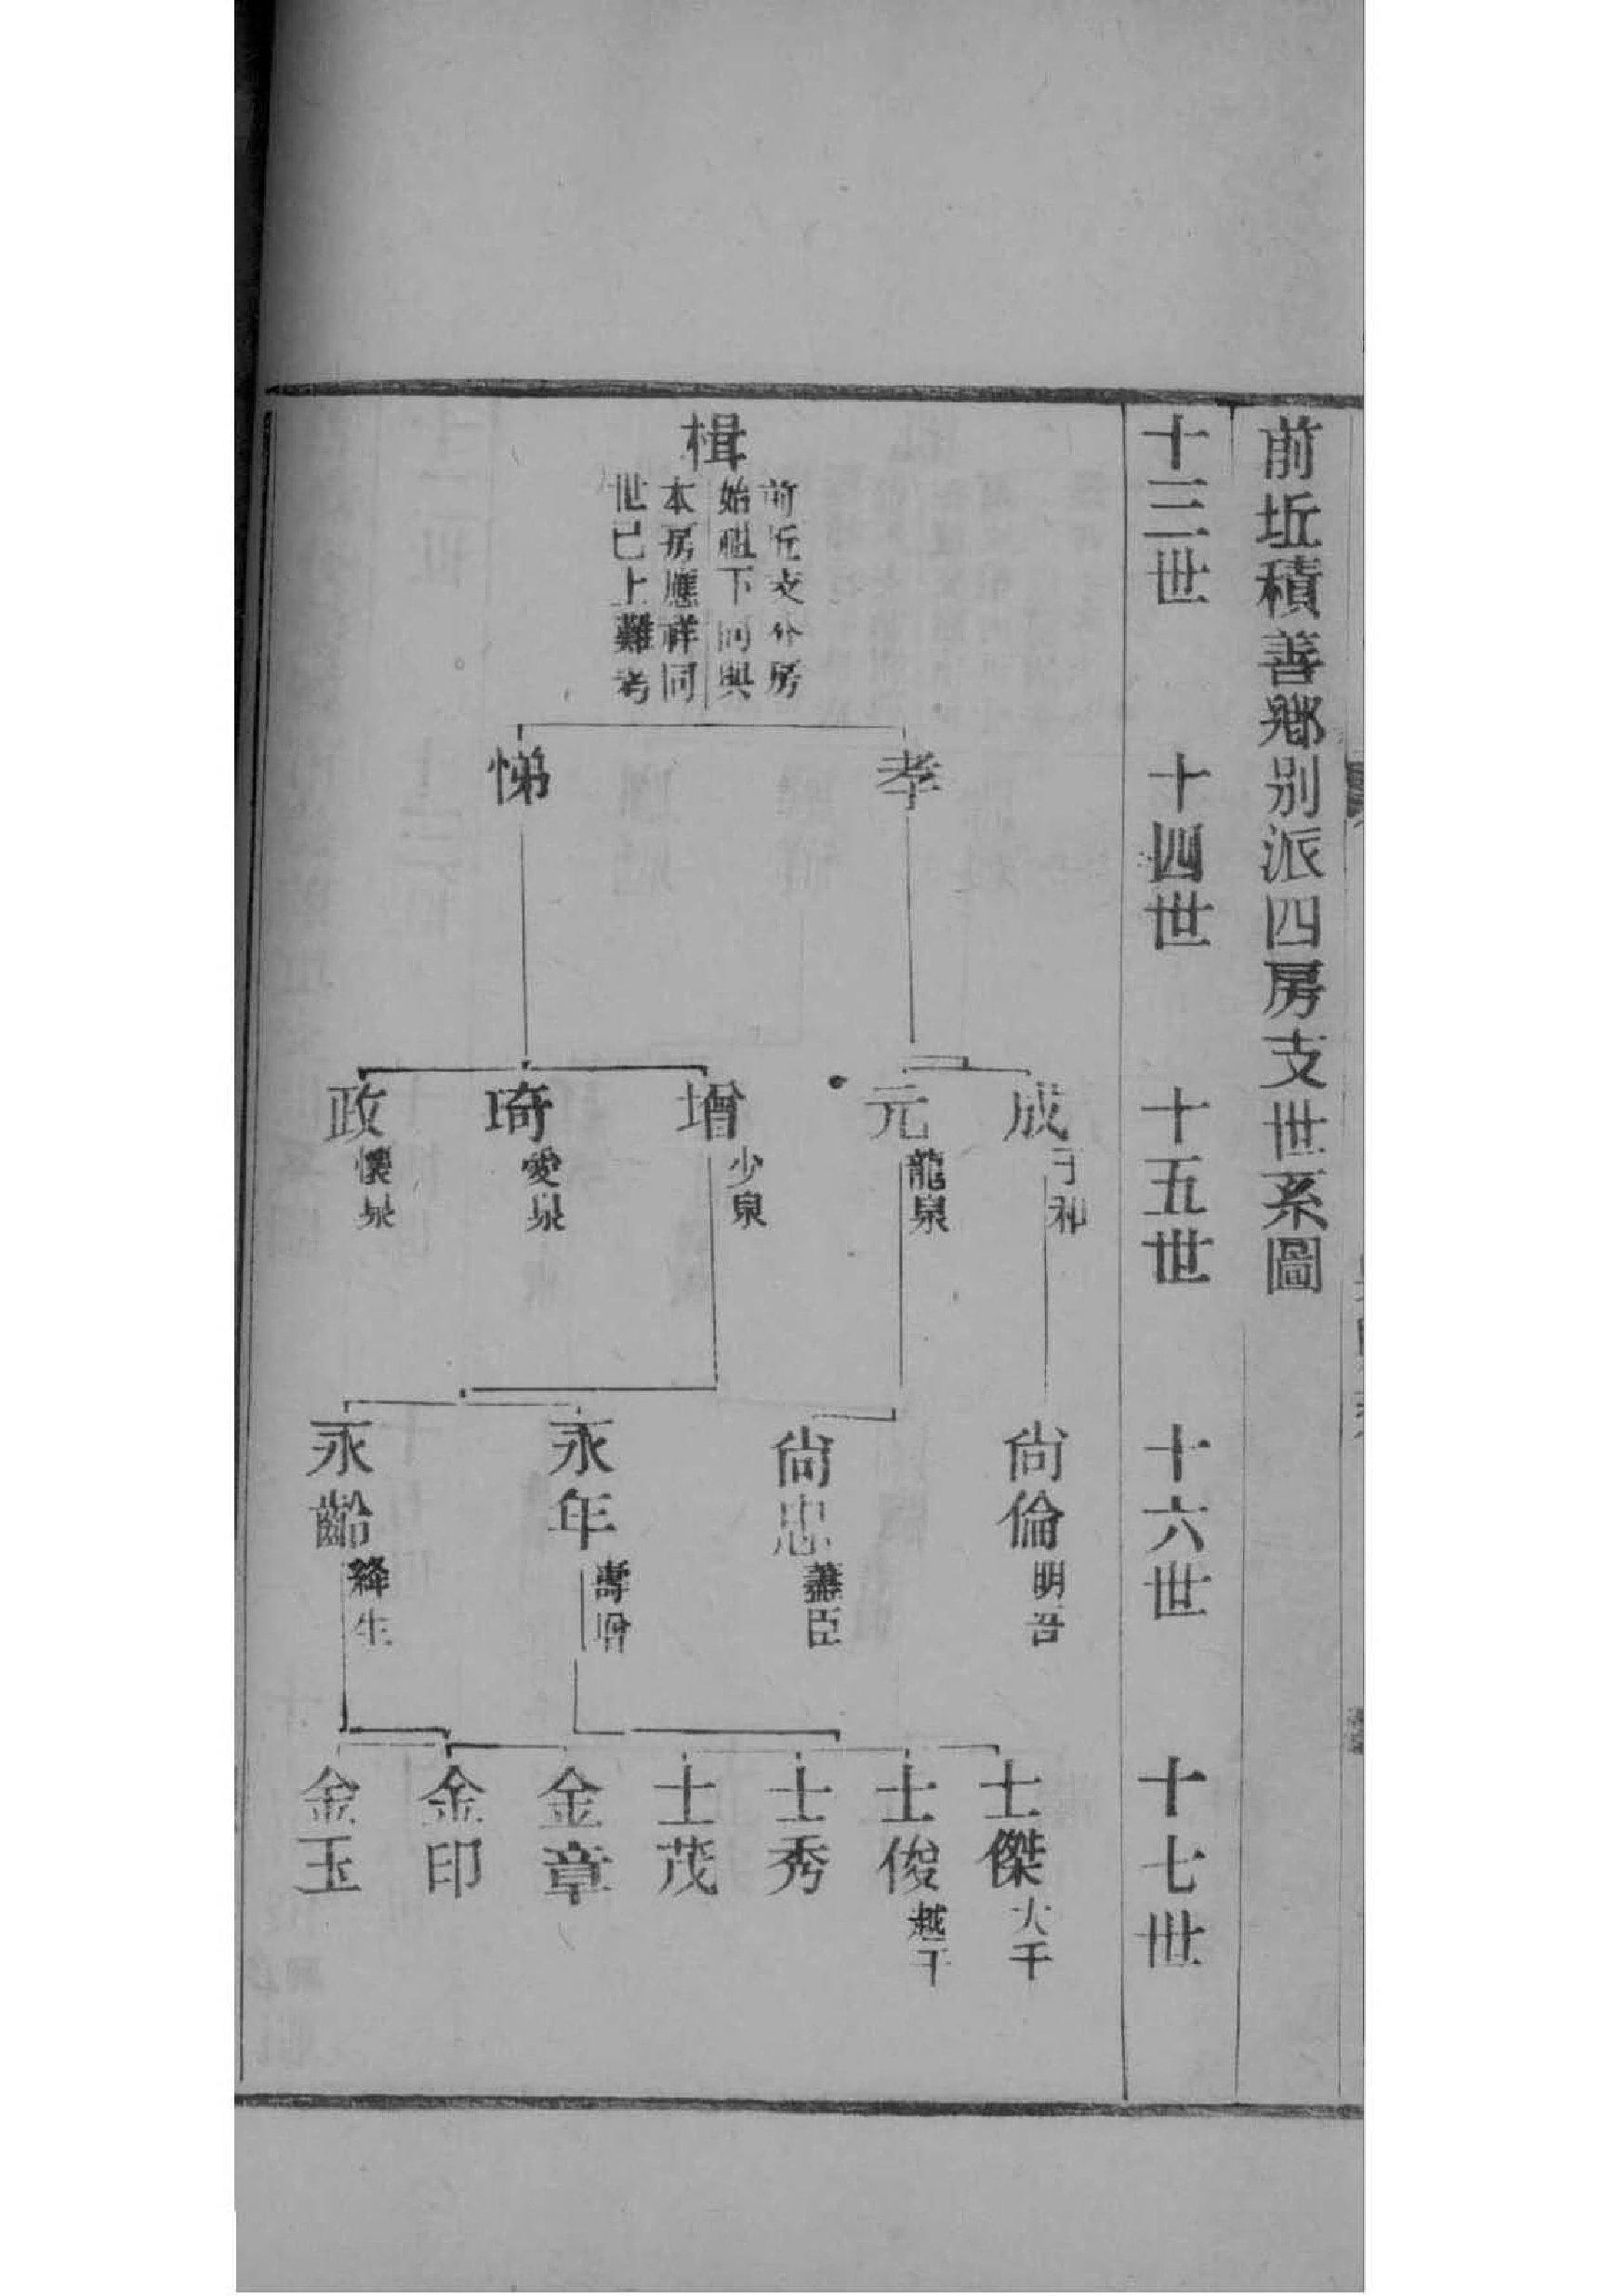 前坵積善鄉別派四房支世系圖
十三世
十四世
十五世
十六世
十七世
楫
前坵支分房
始祖下同與
本房應祥同
世已上難考
孝
悌
成
元
龍泉
增
少泉
琦
愛泉
政
懷泉
尙倫
明吾
尙忠
藎臣
永年
壽
永齡
絳生
士傑
大千
士俊
越千
士秀
士茂
金章
金印
金玉